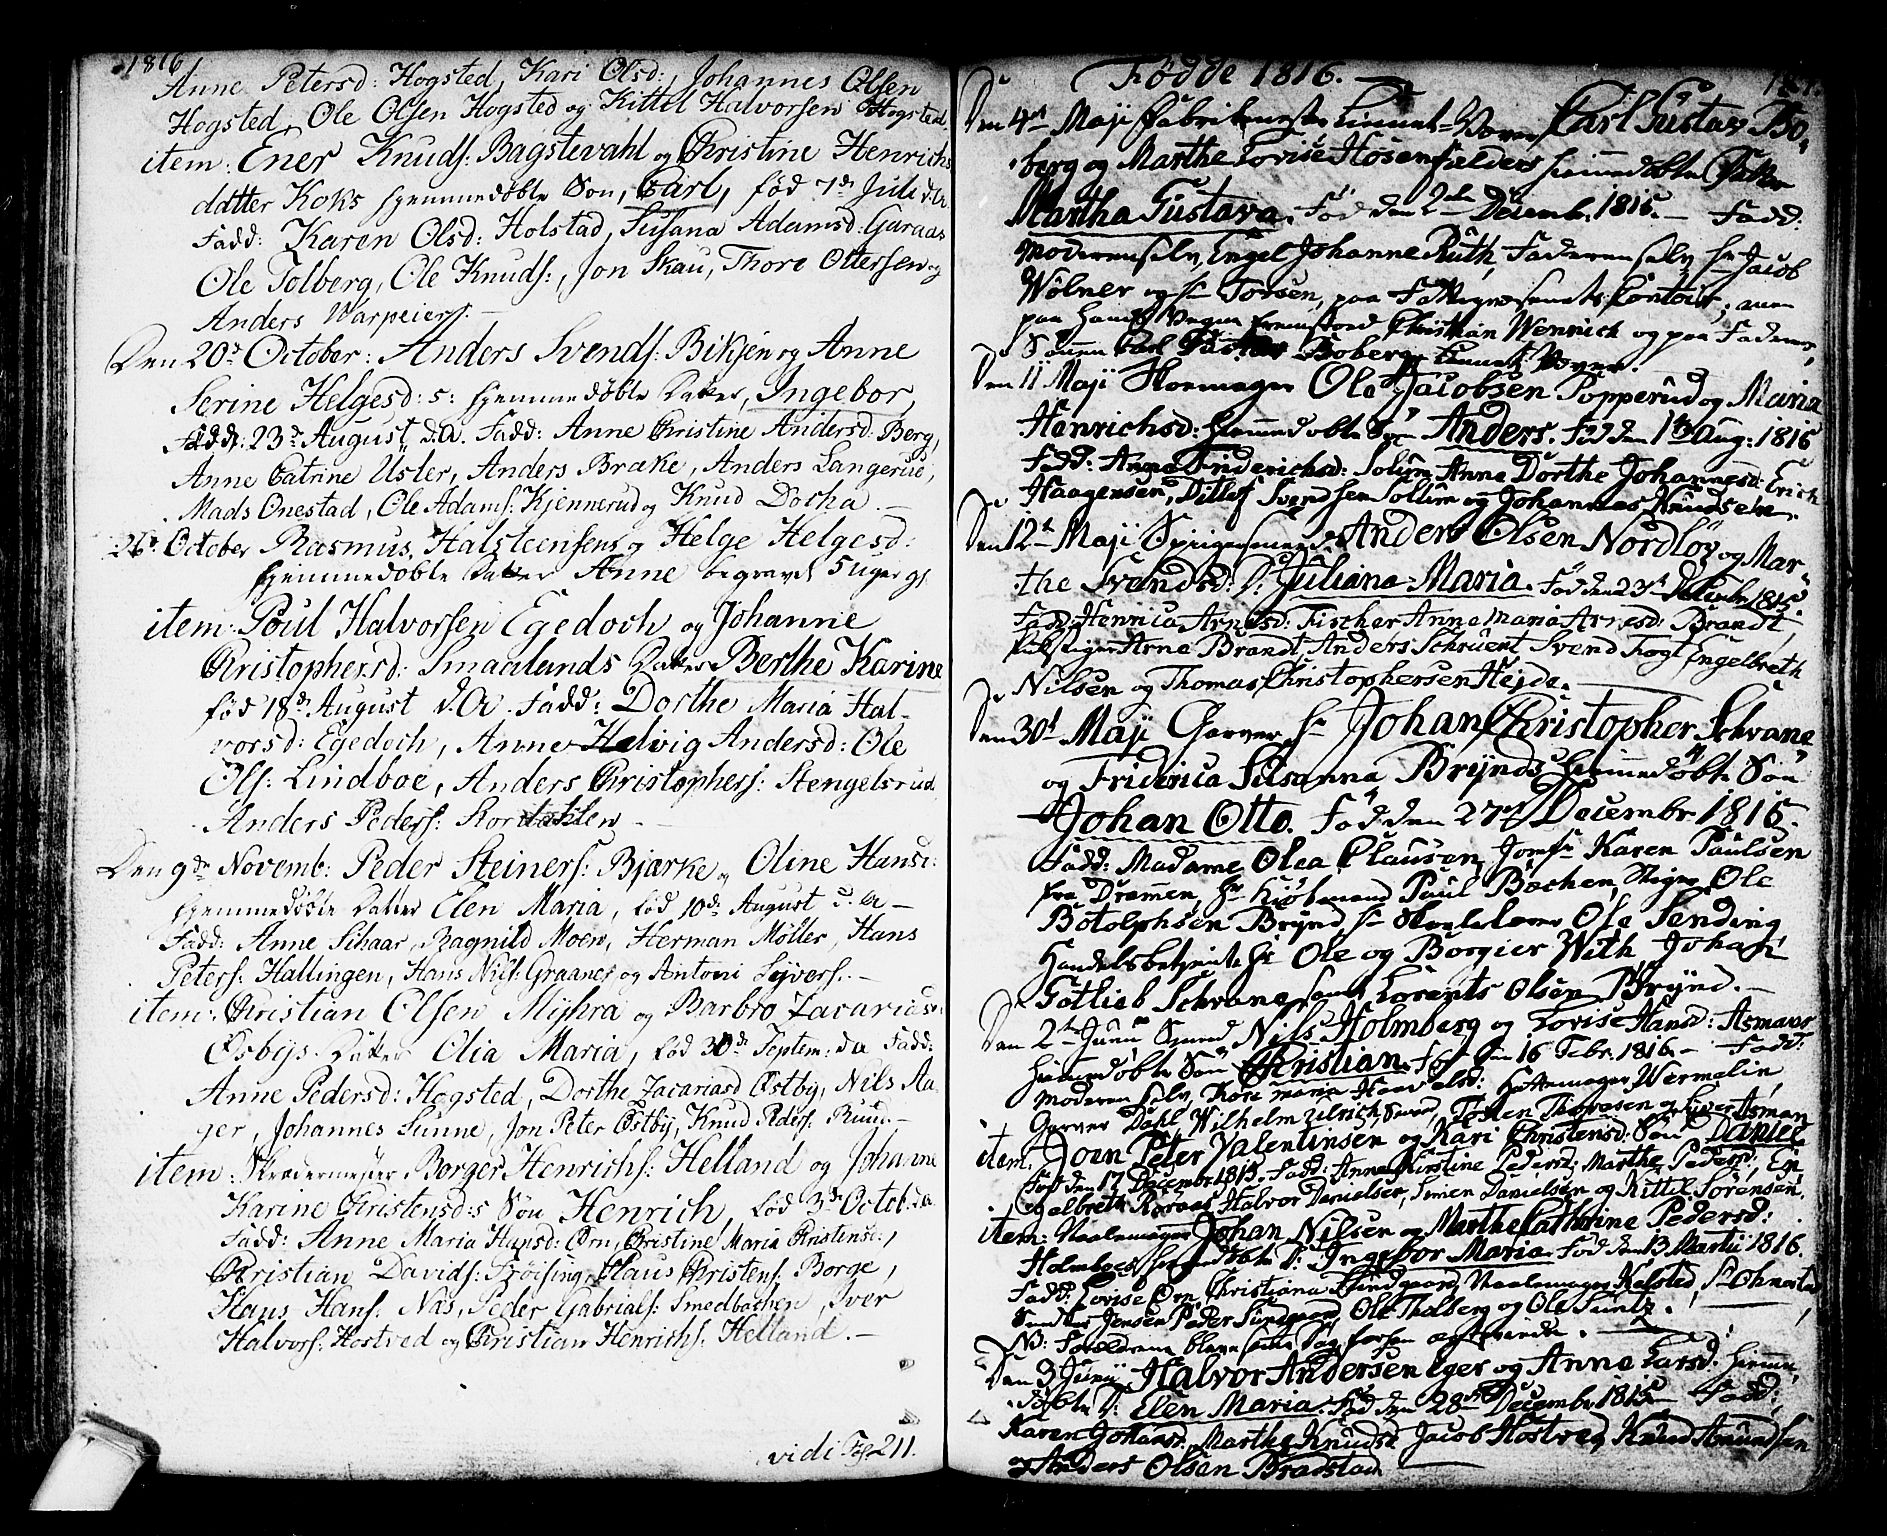 1816
Anne Petersd: Hogsted, Kari Olsd:, Johannes Olsen
Hogsted, Ole Olsen Hogsted og Kittel Halvorsen Hogsted
item: Ener Knuds: Bagstevahl og Christine Henrichs
datter Koks hjemmedøbte Søn, Carl, fød 7de Juli d:A.
Fadd: Karen Olsd: Holstad, Susana Adamsd: Garaas
Ole Tolberg, Ole Knuds:, Jon Skau, Thore Ottersen og
Anders Warpeiers.
Den 20de October: Anders Svends: Biksen og Anne
Serine Helgesd: s: hjemmedøbte Datter, Ingebor,
Fødd: 23de August d.a. Fadd: Anne Christine Andersd: Berg,
Anne Catrine Usler, Anders Brake, Anders Langerue,
Mads Onestad, Ole Adams: Kjennerud og Knud Docha.
26de October Rasmus Halsteensens og Helge Helgesd:
hjemmedøbte Datter Anne begravet 5 uger gl.
item: Poul Halvorsen Egedoch og Johanne
Christophersd: Smaalands Datter Berthe Karine
fød 18de August d.A. Fadd: Dorthe Maria Hal-
vorsd: Egedoch, Anne Helvig Andersd: Ole
Ols: Lindboe, Anders Christophers: Stengelsrud
Anders Peders:
Den 9de Novemb: Peder Steiners: Bjærke og Oline Hansd:
hjemmedøbte Datter Elen Maria, fød 10de August d.a.
Fadd: Anne Schaar, Ragnild Moen, Herman Møller, Hans
Peters: Hallingen, Hans Niels: Graanes og Antoni Syvers.
item: Christian Elsen Myhra og Barbro Zacarias
Østbys Datter Olia Maria, fød 30de Septem: da Fadd:
Anne Pedersd: Hogsted, Dorthe Zacariasd Østby, Nils Aa-
ger, Johannes Lunne, Jon Peter Østby, Knud Peders: Ruud.
item: Skredermester Borger Henrichs: Helland og Johanne
Karine Christensd:s Søn Henrich, fød 3de Octob: da
Fadd: Anne Maria Hansd: Ørn, Christine Maria Christensd:,
Christian Davids: Støising, Claus Christens: Borge,
Hans Hans: Næs, Peder Gabriels: Smedbachen, Iver
Halvors: Hostved og Christian Henrichs: Helland.
vidi 211.
Fødde 1816.
Den 4de Maji Carl Gustav Bo-
berg og Marthe Lovise Hosenfelders hiemmedøbte Datter
Martha Gustava. Fød den 2den Decembr. 1815. Fadd:
Moderen selv, Engel Johanne Ruth, Faderen selv, Hr Jacob
Wølner og Hr Torsen, paa Contoir; men
paa hans Vegne fremstod Christian Wenrich og paa Faderens
Sønnen Carl Gustav Boberg
Den 11 Maji Skoemager Ole Jacobsen Popperud og Maria
Henrichsd: hiemmedøbte Søn Anders. Fød den 1ste Aug: 1816
Fadd: Anne Friderichsd: Solum, Anne Dorthe Johannesd: Erich
Haagensen, Ditlef Svendsen Sollim og Johannes Knudsen.
Den 12te Maji Anders Olsen Nordløv og Mar-
the Svendsd: D. Juliana Maria. Fød den 23de Decembr. 1815.
Fadd: Hennica Arnesd: Fischer Anne Maria Arnesd: Brandt
Pukstiger Arne Brandt, Anders Schruent Svend Fogt Engelbreth
Nilsen og Thomas Christophersen Hejde.
Den 30te Maji Garver Hr Johan Christopher Schrane
og Friderica Susanna Brynds hiemmedøbte Søn
Johan Otto. Fød den 27de Decembr 1815.
Fadd: Madame Olea Clausen, Jomfr Karen Paulsen
fra Drammen, Hr Kiøbmand Paul Bachen, Stiger Ole
Botolphsen Brynd, Hr Skolelærer Ole Sending
Handelsbetjente Hr Ole og Borgier With, Johan
Gotlieb Schrane samt Lorents Olsen Brynd.
Den 2den Juni Svend Nils Holmberg og Lovise Hansd: Asmans
hiemmedøbte Søn Christian. Fød den 16 Febr. 1816. Fadd:
Moderen selv, Thore Maria Haavalsd: Hattemager Wermelin
Garver Dahl, Wilhelm Ulrich, Svend, Torsten Thoresen og Siver Asman
item Joen Peter Valentinsen og Kari Christensd: Søn Daniel
Fød den 17 Decembr 1815. Fadd: Anne Kirstine Pedersd: Marthe Pedersd:, En-
gelbreth Koraas, Halvor Danielsen, Simen Danielsen og Kittil Sørensen,
item: Naalemager Johan Nilsen og Marthe Cathrine Pedersd:
Holmboes hiemmedøbte D: Ingebor Maria. Fød den 13 Martii 1816.
Fadd: Lovise Ørn, Christiana Sundgaard, Naalemager Kalsted, Hr Ohnstad
Snedker Jensen Peder Sundgaard, Ole Tholberg og Ole Suntz.
NB: Forældrene bleve
Den 3 Junij Halvor Andersen Eger og Anne Larsd: hiemme-
døbte D: Elen Maria. Fød den 28de Decembr. 1815. Fadd:
Karen Johansd. Marthe Knudsd. Jacob Hostved, Knud Amundsen
og Anders Olsen Bradstad